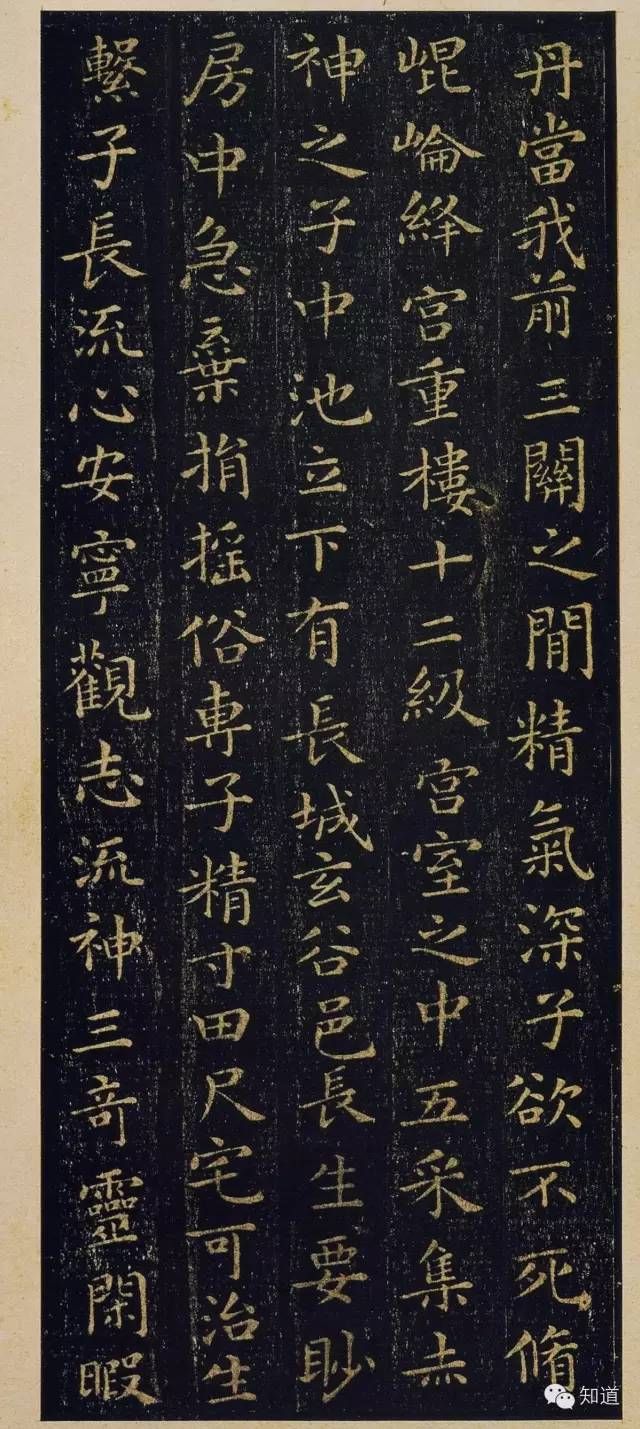 丹當我前三關之閒精氣深子欲不死脩
崐崘絳宮重樓十二級宮室之中五采集赤
神之子中池立下有長城玄谷邑長生要眇
房中急棄捐搖俗專子精寸田尺宅可治生
繫子長流心安寧觀志流神三奇靈閑暇
知道